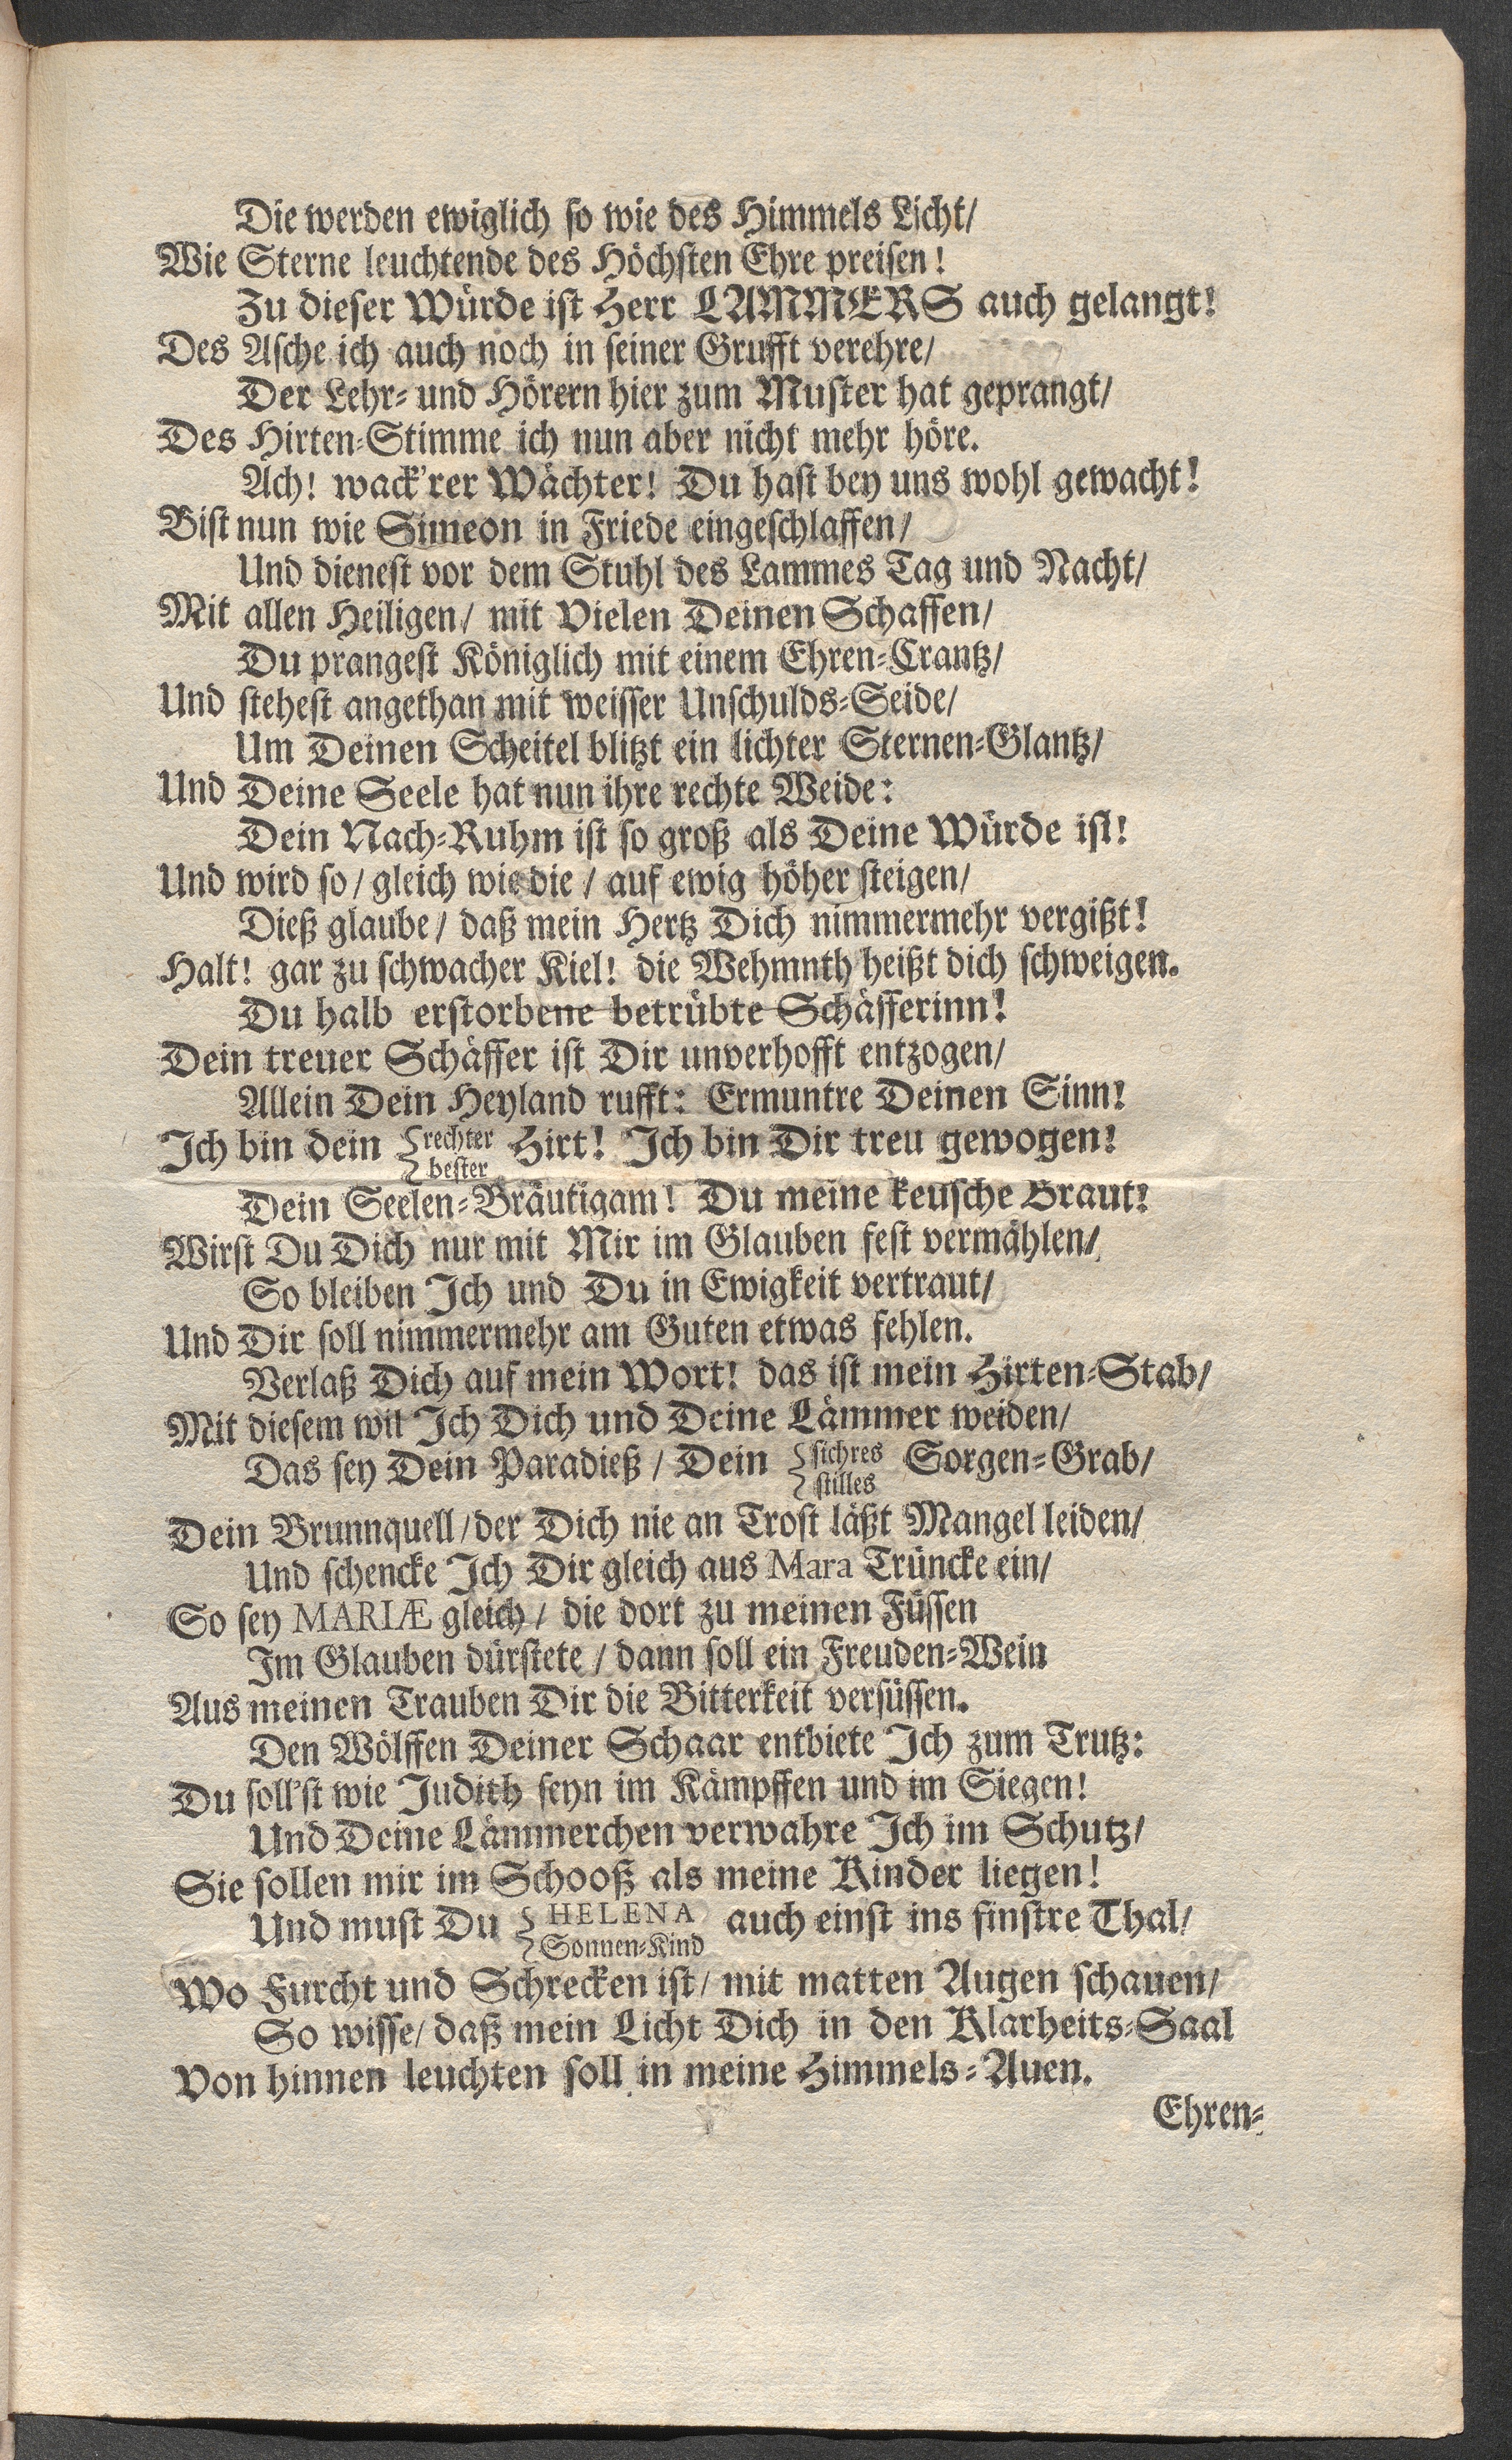 Die werden ewiglich so wie des Himmels Licht/
Wie Sterne leuchtende des Höchsten Ehre preisen!
Zu dieser Würde ist Herr LAMMERS auch gelangt!
Des Asche ich auch noch in seiner Grufft verehre/
Der Lehr- und Hörern hier zum Muster hat geprangt/
Des Hirten-Stimme ich nun aber nicht mehr höre.
Ach! wack'rer Wächter! Du hast bey uns wohl gewacht!
Bist nun wie Simeon in Friede eingeschlaffen/
Und dienest vor dem Stuhl des Lammes Tag und Nacht/
Mit allen Heiligen/ mit Vielen Deinen Schaffen/
Du prangest Königlich mit einem Ehren-Crantz/
Und stehest angethan mit weisser Unschulds-Seide/
Um Deinen Scheitel blitzt ein lichter Sternen-Glantz/
Und Deine Seele hat nun ihre rechte Weide:
Dein Nach-Ruhm ist so groß als Deine Würde ist!
Und wird so/ gleich wie die/ auf ewig höher steigen/
Dieß glaube/ daß mein Hertz Dich nimmermehr vergißt!
Halt! gar zu schwacher Kiel! die Wehmnth heißt dich schweigen.
Du halb erstorbene betrübte Schäfferinn!
Dein treuer Schäffer ist Dir unverhofft entzogen/
Allein Dein Heyland rufft: Ermuntre Deinen Sinn!
Ich bin dein {rechter Hirt! Ich bin Dir treu gewogen!
{bester
Dein Seelen-Bräutigam! Du meine keusche Braut!
Wirst Du Dich nur mit Mir im Glauben fest vermählen/
So bleiben Ich und Du in Ewigkeit vertraut/
Und Dir soll nimmermehr am Guten etwas fehlen.
Verlaß Dich auf mein Wort! das ist mein Hirten-Stab/
Mit diesem wil Ich Dich und Deine Lämmer weiden/
Das sey Dein Paradieß/ Dein {sichres Sorgen-Grab/
{stilles
Dein Brunnquell/ der Dich nie an Trost läßt Mangel leiden/
Und schencke Ich Dir gleich aus Mara Trüncke ein/
So sey MARIÆ gleich/ die dort zu meinen Füssen
Im Glauben dürstete/ dann soll ein Freuden-Wein
Aus meinen Trauben Dir die Bitterkeit versüssen.
Den Wölffen Deiner Schaar entbiete Ich zum Trutz:
Du soll'st wie Judith seyn im Kämpffen und im Siegen!
Und Deine Lämmerchen verwahre Ich im Schutz/
Sie sollen mir im Schooß als meine Kinder liegen!
Und must Du {HELENA auch einst ins finstre Thal/
{Sonnen-Kind
Wo Furcht und Schrecken ist/ mit matten Augen schauen/
So wisse/ daß mein Licht Dich in den Klarheits-Saal
Von hinnen leuchten soll in meine Himmels-Auen.
Ehren-